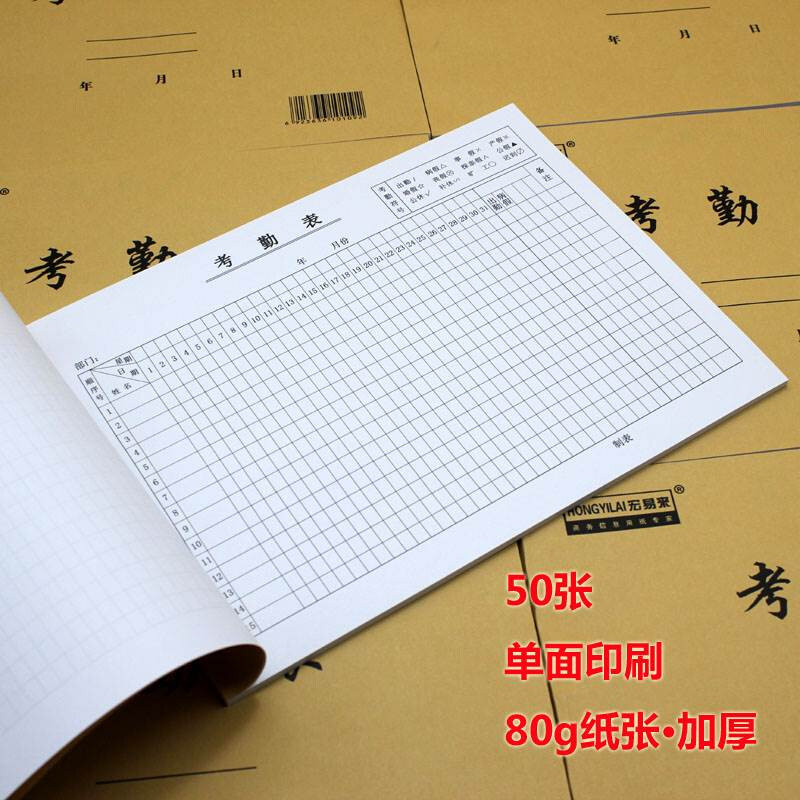 考
年 月 日
年 月 日
6923616131092
考勤
考 勤 表
年 月份
考勤符号
出勤/ 病假△ 事假× 产假×
公休√
迟到∅
部门：
星期
日期
姓名
顺序号
1 2 3 4 5 6 7 8 9 10 11 12 13 14 15 16 17 18 19 20 21 22 23 24 25 26 27 28 29 30 31 出勤 病假
备注
1
2
3
4
5
6
7
8
9
10
11
12
13
14
5
制表
考勤
HONGYILAI 宏易来®
商务信息用纸专家
考
50张
单面印刷
80g纸张·加厚